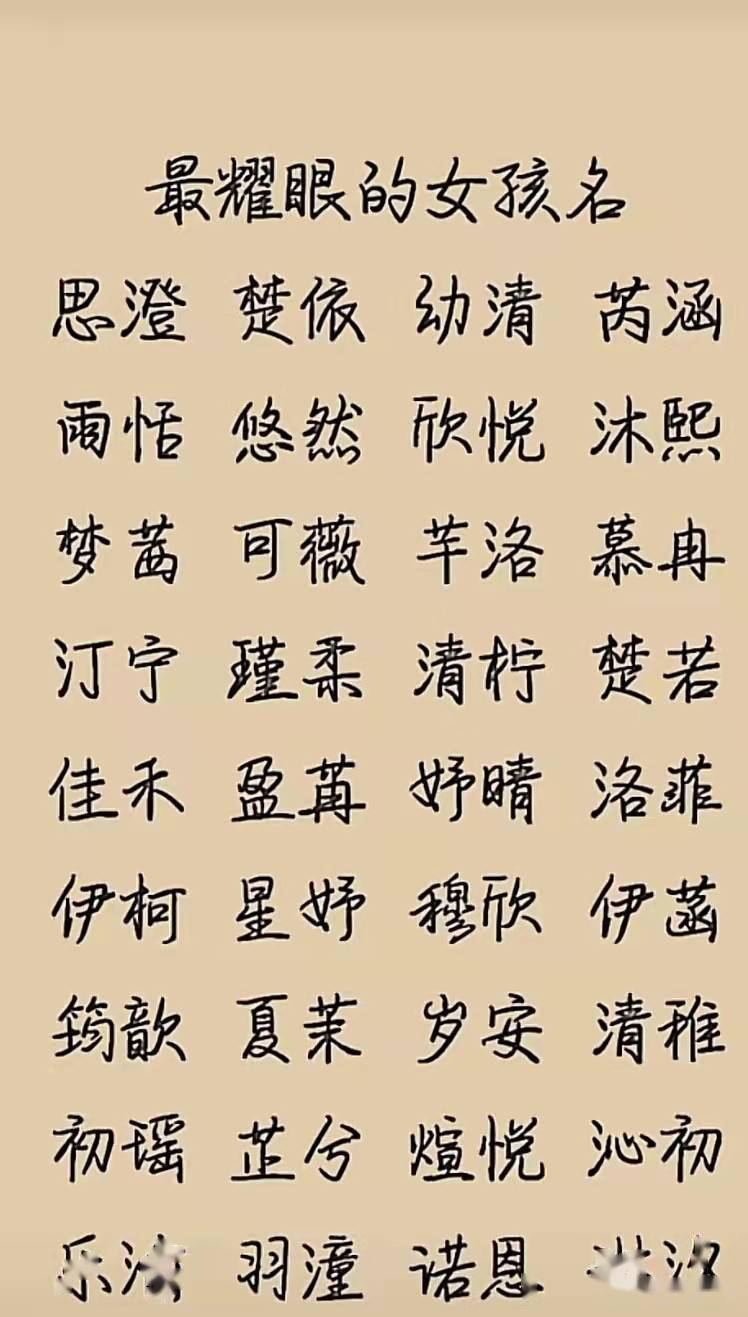 最耀眼的女孩名
思澄 楚依 幼清 芮涵
雨恬 悠然 欣悦 沐熙
梦茜 可薇 芊洛 慕冉
汀宁 瑾柔 清柠 楚若
佳禾 盈苒 妤晴 洛菲
伊柯 星妤 穆欣 伊菡
筠歆 夏茉 岁安 清稚
初瑶 芷兮 煊悦 沁初
乐 羽潼 诺恩 汐